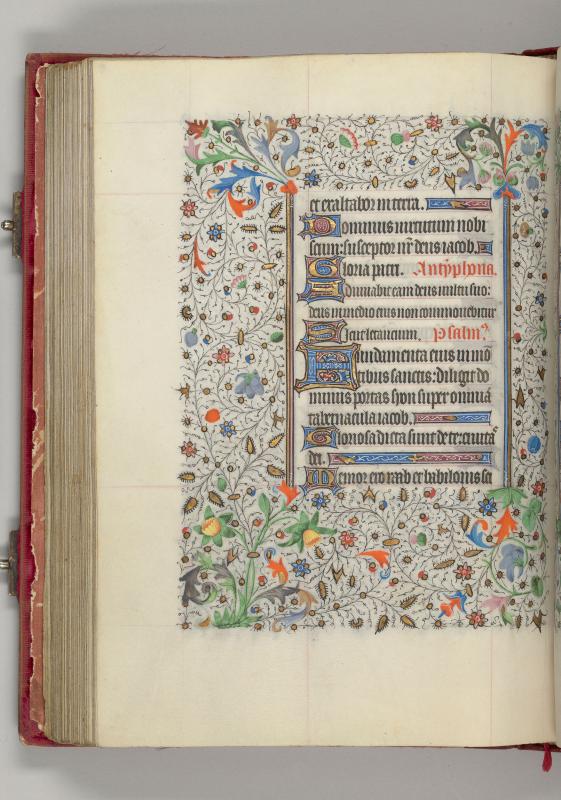 et exaltabor in terra.
Dominus virtutum nobi
scum: susceptor nr̃ deus iacob.
Gloria patri. Antyphona.
Adiuuabit eam deus vultu suo:
deus in medio eius non commouebitur
Sancte mentem. Psalmᵒ.
Fundamenta eius in mõ
tibus sanctis: diligit do
minus portas syon super omnia
tabernacula iacob.
Gloriosa dicta sunt de te: ciuitaˢ
dei.
Memor ero raab et babilonis sci